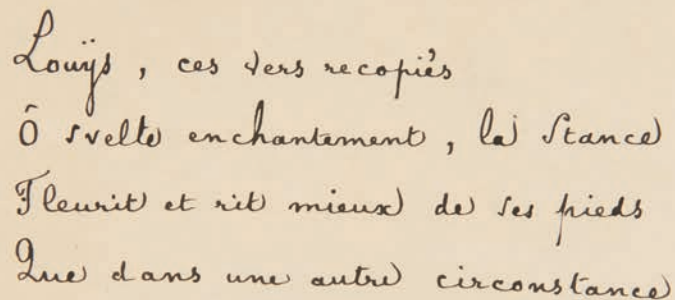 Louÿs, ces vers recopiés
Ô svelte enchantement, la Stance
Fleurit et rit mieux de ses pieds
Que dans une autre circonstance